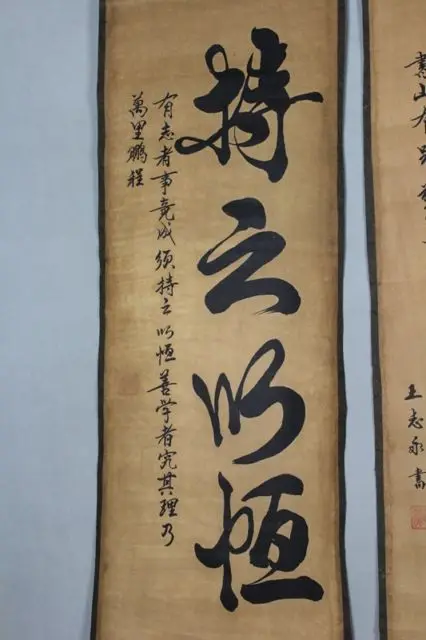 書山有路
王志永書
持之以恒
有志者事竟成須持之以恒善学者究其理乃
萬里鵬程